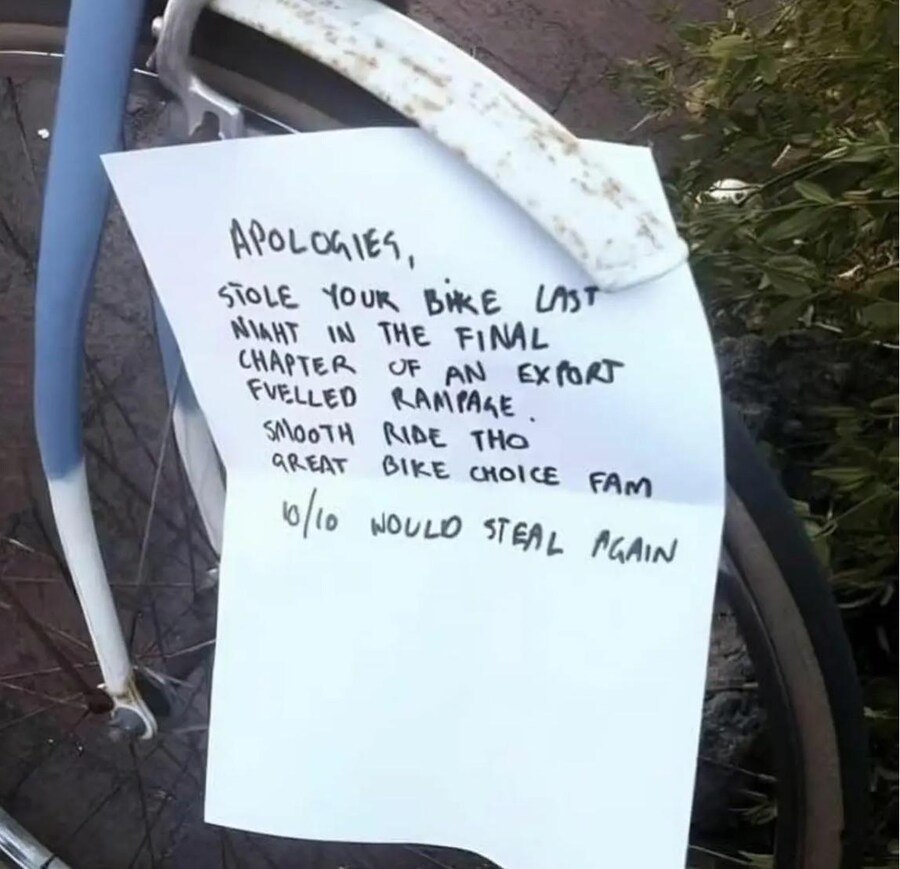 APOLOGIES,
STOLE YOUR BIKE LAST
NIGHT IN THE FINAL
CHAPTER OF AN EXPORT
FUELLED RAMPAGE.
SMOOTH RIDE THO
GREAT BIKE CHOICE FAM
10/10 WOULD STEAL AGAIN